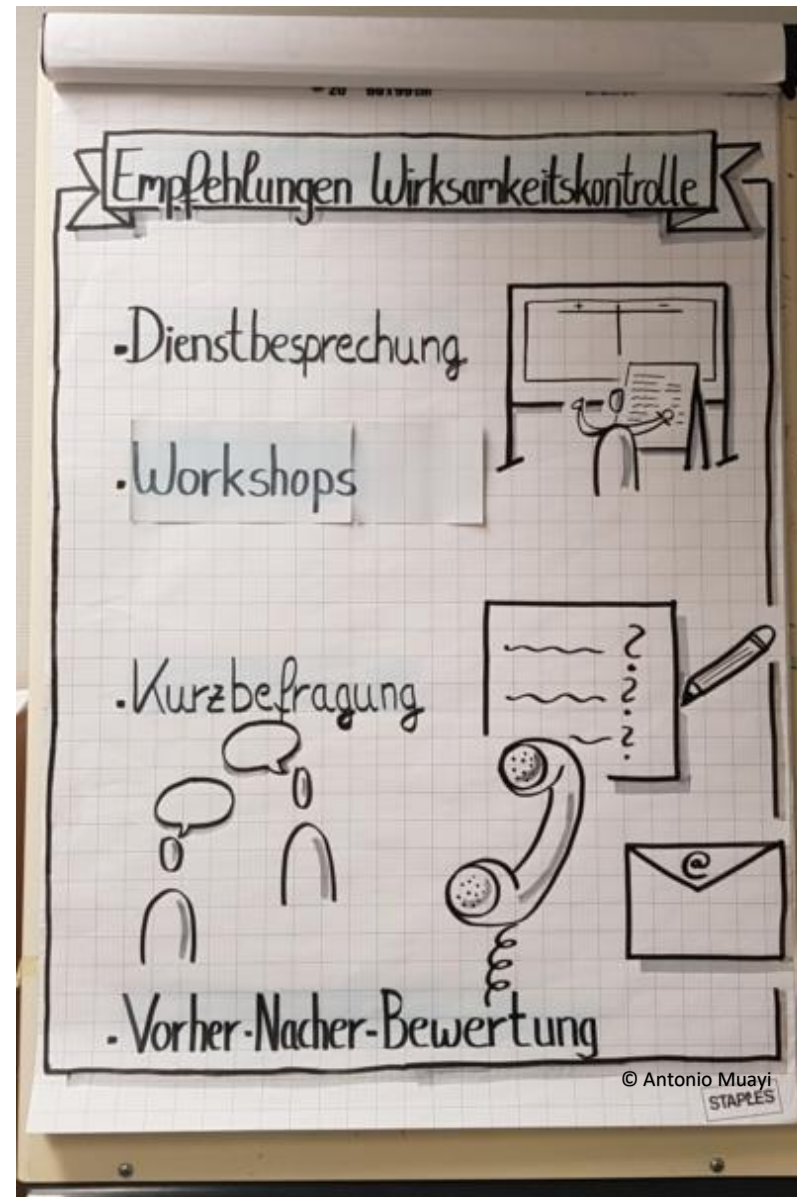 Empfehlungen Wirksamkeitskontrolle
+ -
·Dienstbesprechung
·Workshops
·Kurzbefragung
?
?
?
@
·Vorher-Nacher-Bewertung
© Antonio Muayi
STAPLES